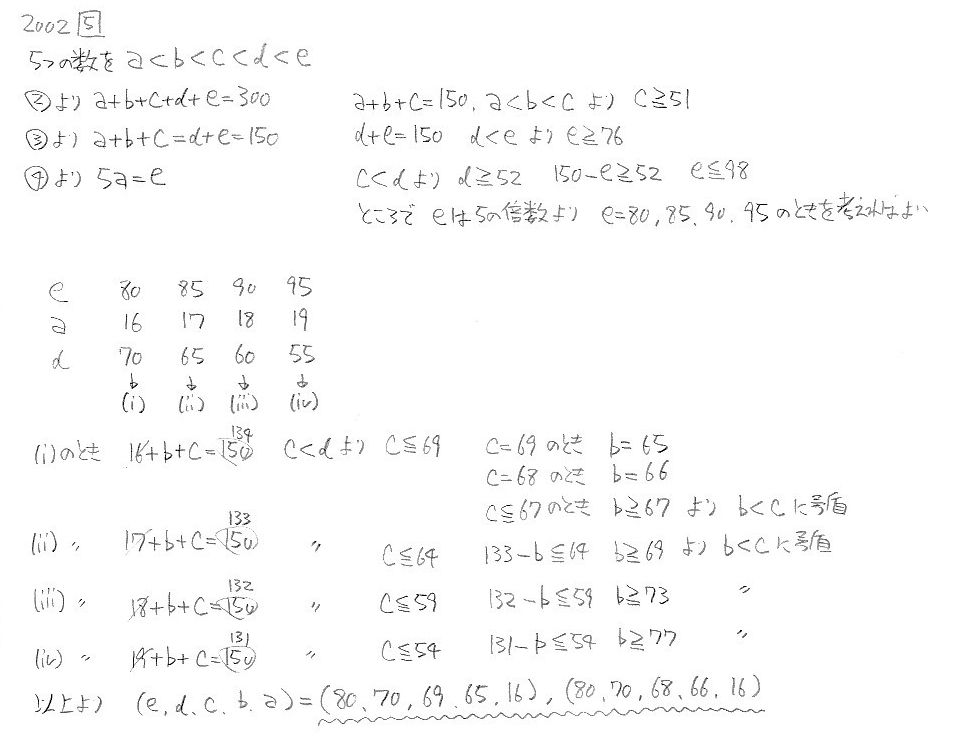 2002 5
5つの数を a<b<c<d<e
②より a+b+c+d+e=300 a+b+c=150, a<b<c より c≧51
③より a+b+c=d+e=150 d+e=150 d<e より e≧76
④より 5a=e c<dより d≧52 150-e≧52 e≦98
ところで eは5の倍数より e=80, 85, 90, 95 のときを考えればよい
e 80 85 90 95
a 16 17 18 19
d 70 65 60 55
↓ ↓ ↓ ↓
(i) (ii) (iii) (iv)
(i)のとき 16+b+c=150 134 c<dより c≦69 c=69 のとき b=65
c=68 のとき b=66
c≦67のとき b≧67 より b<cに矛盾
(ii) 〃 17+b+c=150 133 〃 c≦64 133-b≦64 b≧69 より b<cに矛盾
(iii) 〃 18+b+c=150 132 〃 c≦59 132-b≦59 b≧73 〃
(iv) 〃 19+b+c=150 131 〃 c≦54 131-b≦54 b≧77 〃
以上より (e, d, c, b, a)=(80, 70, 69, 65, 16), (80, 70, 68, 66, 16)